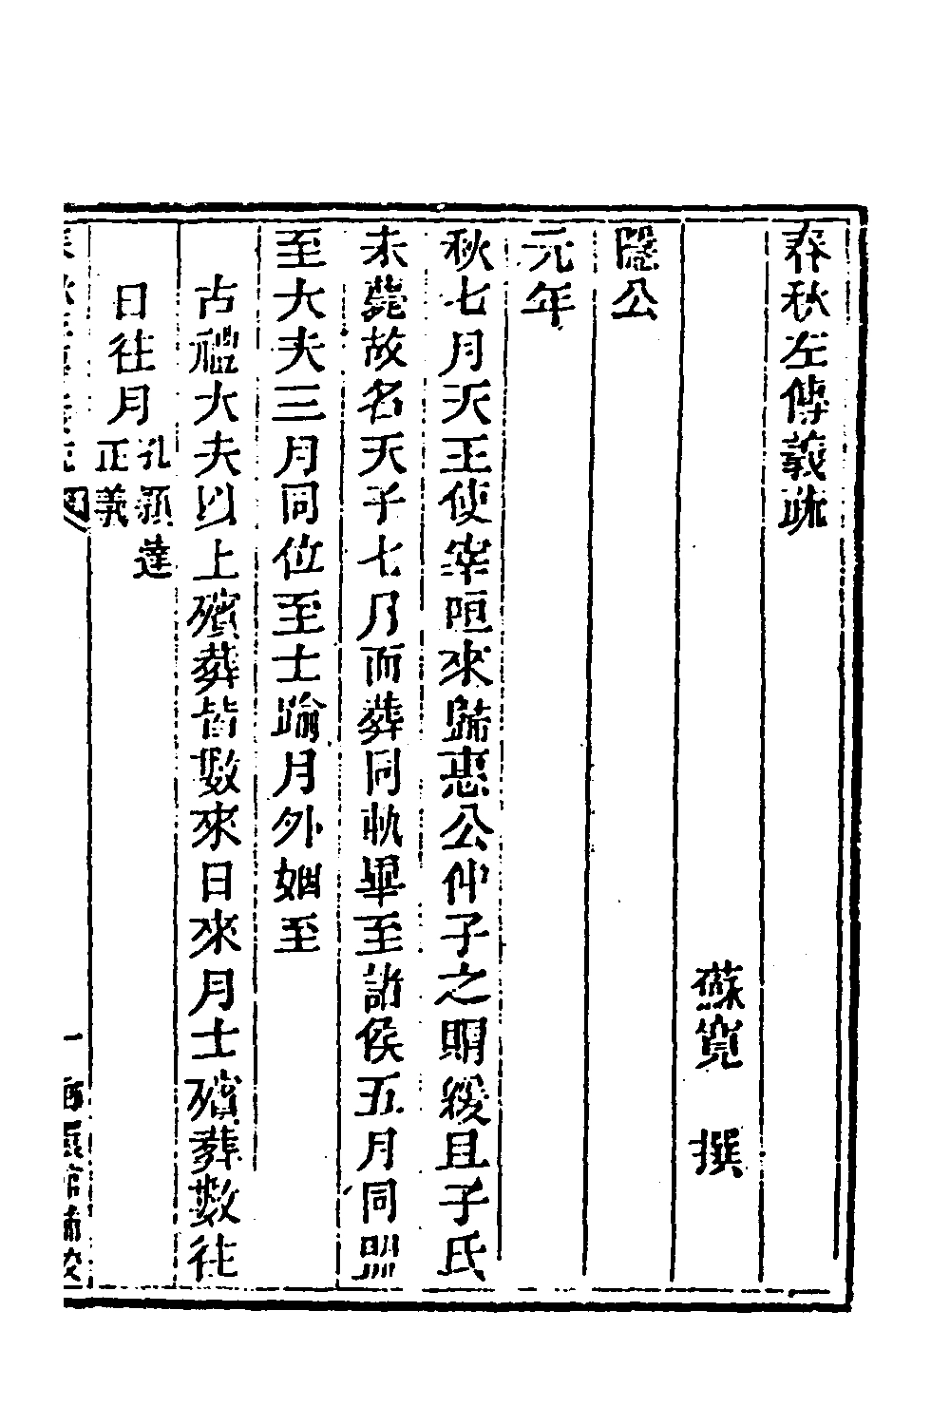 春秋左傳義疏
蘇寬 撰
隱公
元年
秋七月天王使宰咺來歸惠公仲子之賵緩且子氏
未薨故名天子七月而葬同軌畢至諸侯五月同盟
至大夫三月同位至士踰月外姻至
古禮大夫以上殯葬皆數來日來月士殯葬數往
日往月孔穎達
正義